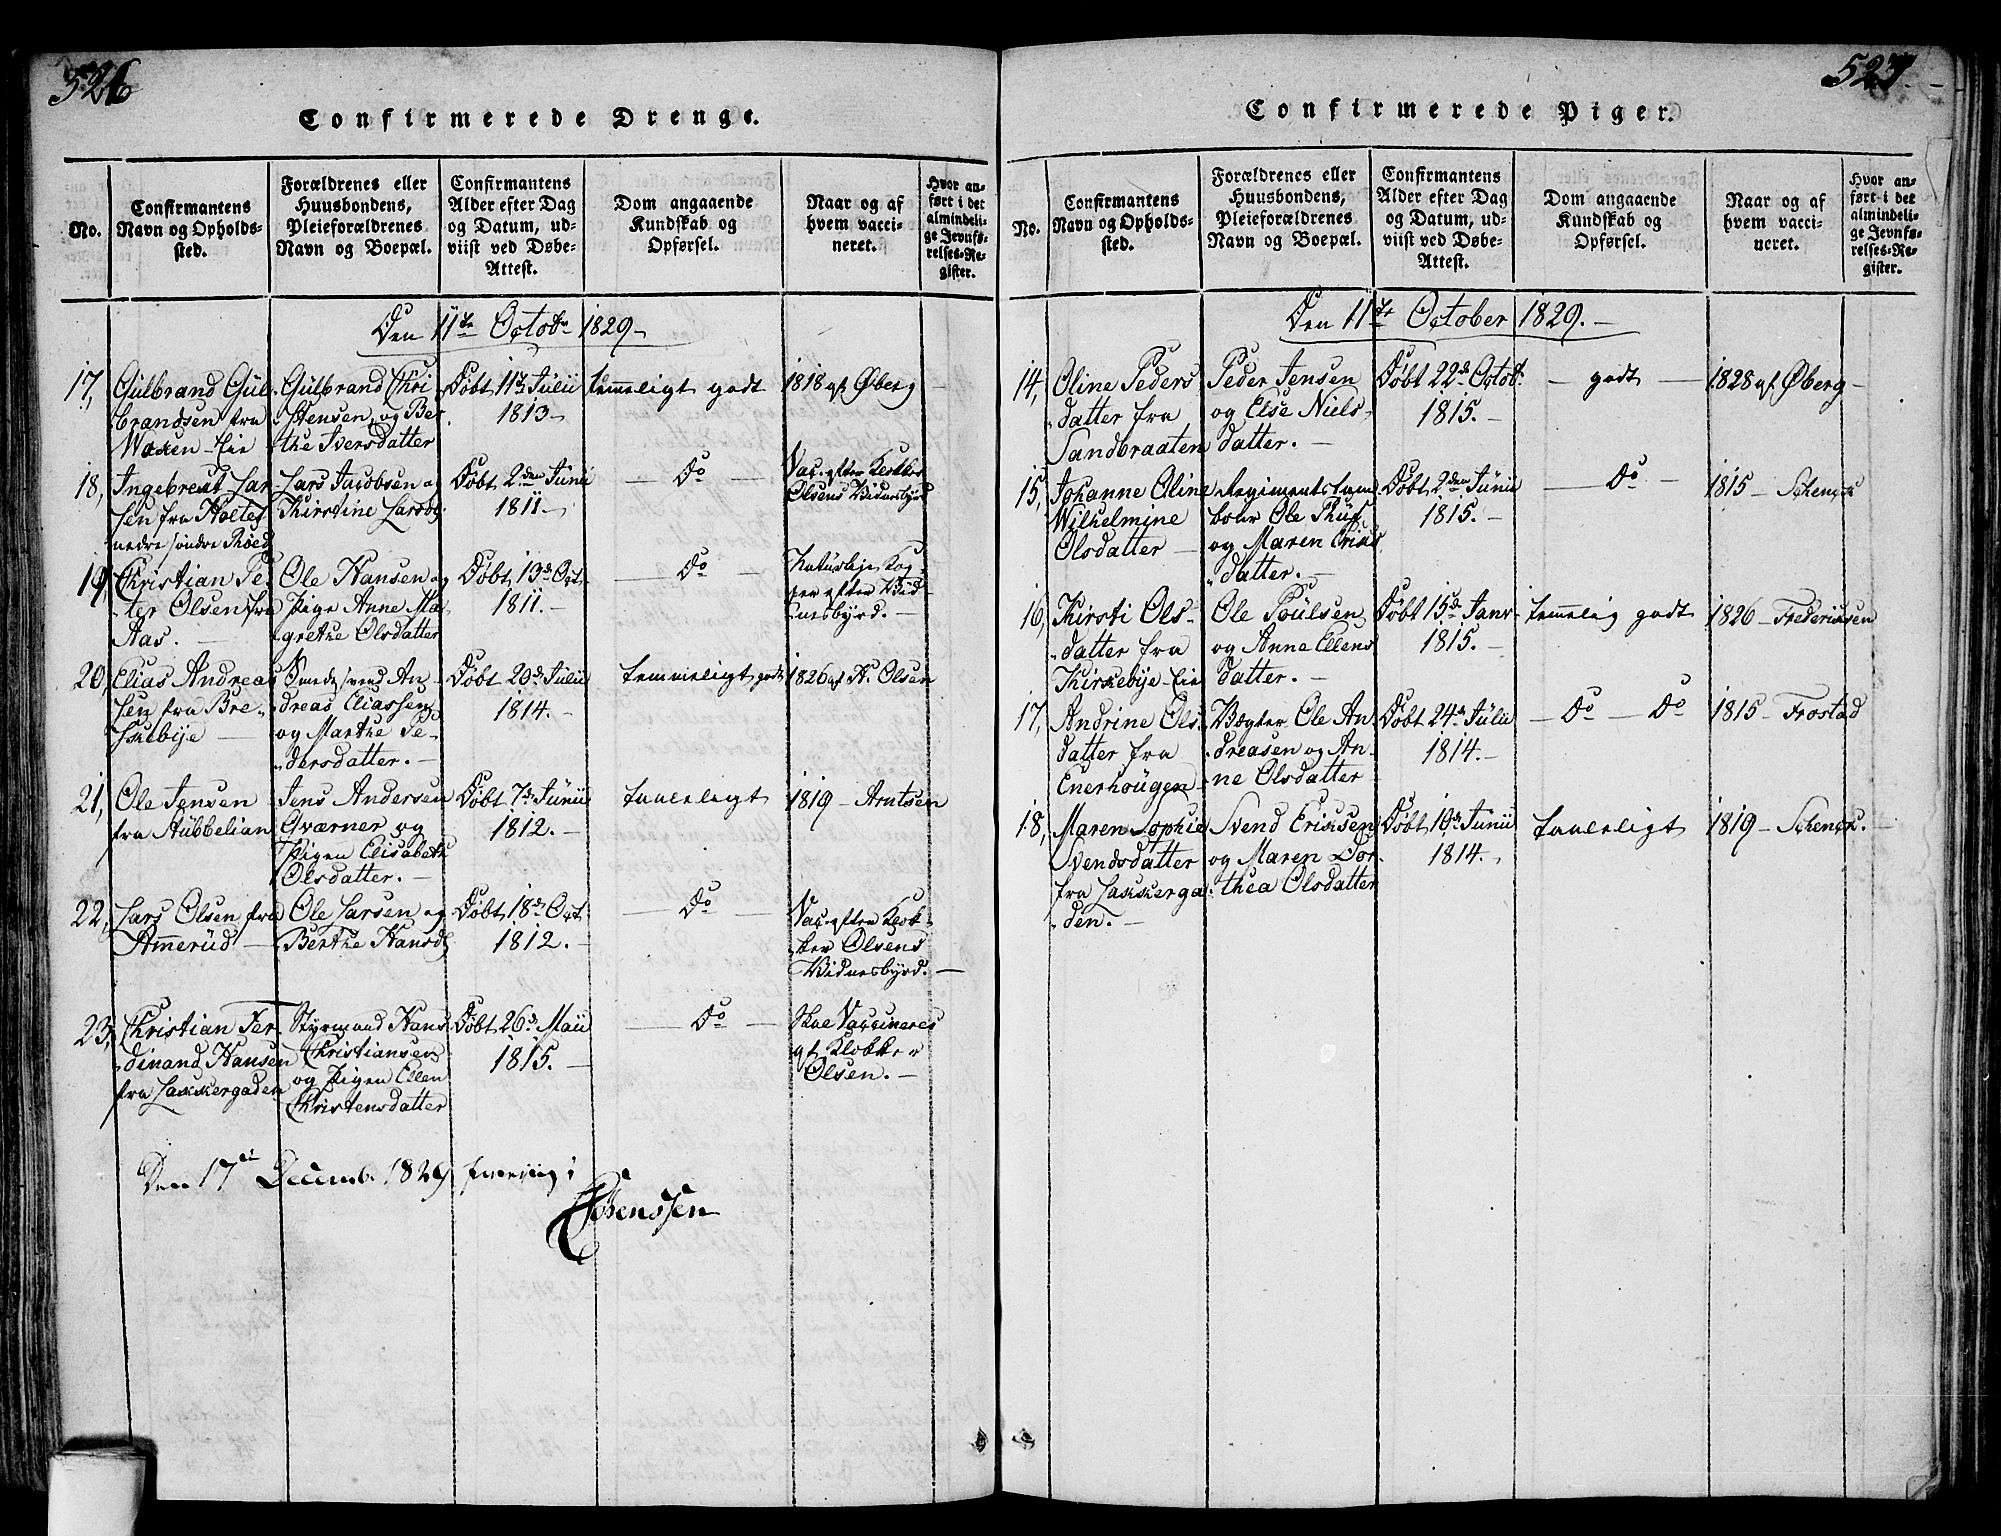 526
Confirmerede Drenge.
No.
Confirmantens
Navn og Opholds-
sted.
Forældrenes eller
Huusbondens,
Pleieforældrenes
Navn og Boepæl.
Confirmantens
Alder efter Dag
og Datum, ud-
viist ved Døbe-
Attest.
Dom angaaende
Kundskab og
Opførsel.
Naar og af
hvem vacci-
neret.
Hvor an-
ført i det
almindeli-
ge Jevnfø-
relses-Re-
gister.
Den 11te Octobr 1829
17,
Gulbrand Gul-
brandsen fra
Waxen-Eie
Gulbrand Chri-
stensen, og Ber-
the Iversdatter
Døbt 11te Julii
1813
temmeligt godt
1818 af Øberg
18,
Ingebreut Lar-
sen fra
Lars Jacobsen og
Kirstine Larsd.
Døbt 2den Junii
1811
Do
Vac. efter Klokker
Olsens Vidnesbyrd
19,
Christian Pe-
ter Olsen fra
Aas.
Ole Hansen og
Pige Anne Ma-
grethe Olsdatter
Døbt 13de Oct.
1811.
Do
Naturlige Kop-
per efter Vid-
nesbyrd.
20,
Elias Andreas
sen fra Bre-
Smedesvend An-
dreas Eliassen
og Marthe Pe-
dersdatter.
Døbt 20de Julii
1814.
temmeligt godt
1826 af H. Olsen
21,
Ole Jensen
fra Hübbelian
Jens Andersen
Qværner og
Pigen Elisabeth
Olsdatter.
Døbt 7de Junii
1812.
taaleligt
1819 - Arntsen
22,
Lars Olsen fra
Ammerüd
Ole Larsen og
Berthe Hansd.
Døbt 18de Oct.
1812.
Do
Vac. efter Klok-
ker Olsens
Vidnesbyrd.
23,
Christian Fer-
dinand Hansen
fra Lakkergaden
Styrmand Hans
Christiansen
og Pigen Ellen
Christensdatter
Døbt 26de Maii
1815.
Do
Skal Vaccineres
af Klokker
Olsen.
Den 17de Decemb. 1829
527.
Confirmerede Piger.
No.
Confirmantens
Navn og Opholds-
sted.
Forældrenes eller
Huusbondens,
Pleieforældrenes
Navn og Boepæl.
Confirmantens
Alder efter Dag
og Datum, ud-
viist ved Døbe-
Attest.
Dom angaaende
Kundskab og
Opførsel.
Naar og af
hvem vacci-
neret.
Hvor an-
ført i det
almindeli-
ge Jevnfø-
relses-Re-
gister.
Den 11te October 1829.
14,
Oline Peders-
datter fra
Sandbraaten
Peder Jensen
og Else Niels-
datter.
Døbt 22de Octob.
1815.
godt
1828 af Øberg
15,
Johanne Oline
Wilhelmine
Olsdatter
Regimentstam-
bour Ole
og Maren Eriks
datter.
Døbt 2den Junii
1815.
Do
1815 - Schenck
16,
Kirsti Ols-
datter fra
Kirkebye-Eie
Ole Poülsen
og Anne Ellens
datter.
Døbt 15de Janr
1815.
temmelig godt
1826 - Frederiksen
17,
Andrine Ols-
datter fra
Enerhougen
Vægter Ole An-
dreasen og An-
ne Olsdatter
Døbt 24de Julii
1814.
Do Do
1815 - Frostad
18,
Maren Sophie
Svendsdatter
fra Lakkerga-
den.
Svend Eriksen
og Maren Dor-
thea Olsdatter
Døbt 19de Junii
1814.
taaleligt
1819 - Schenck.